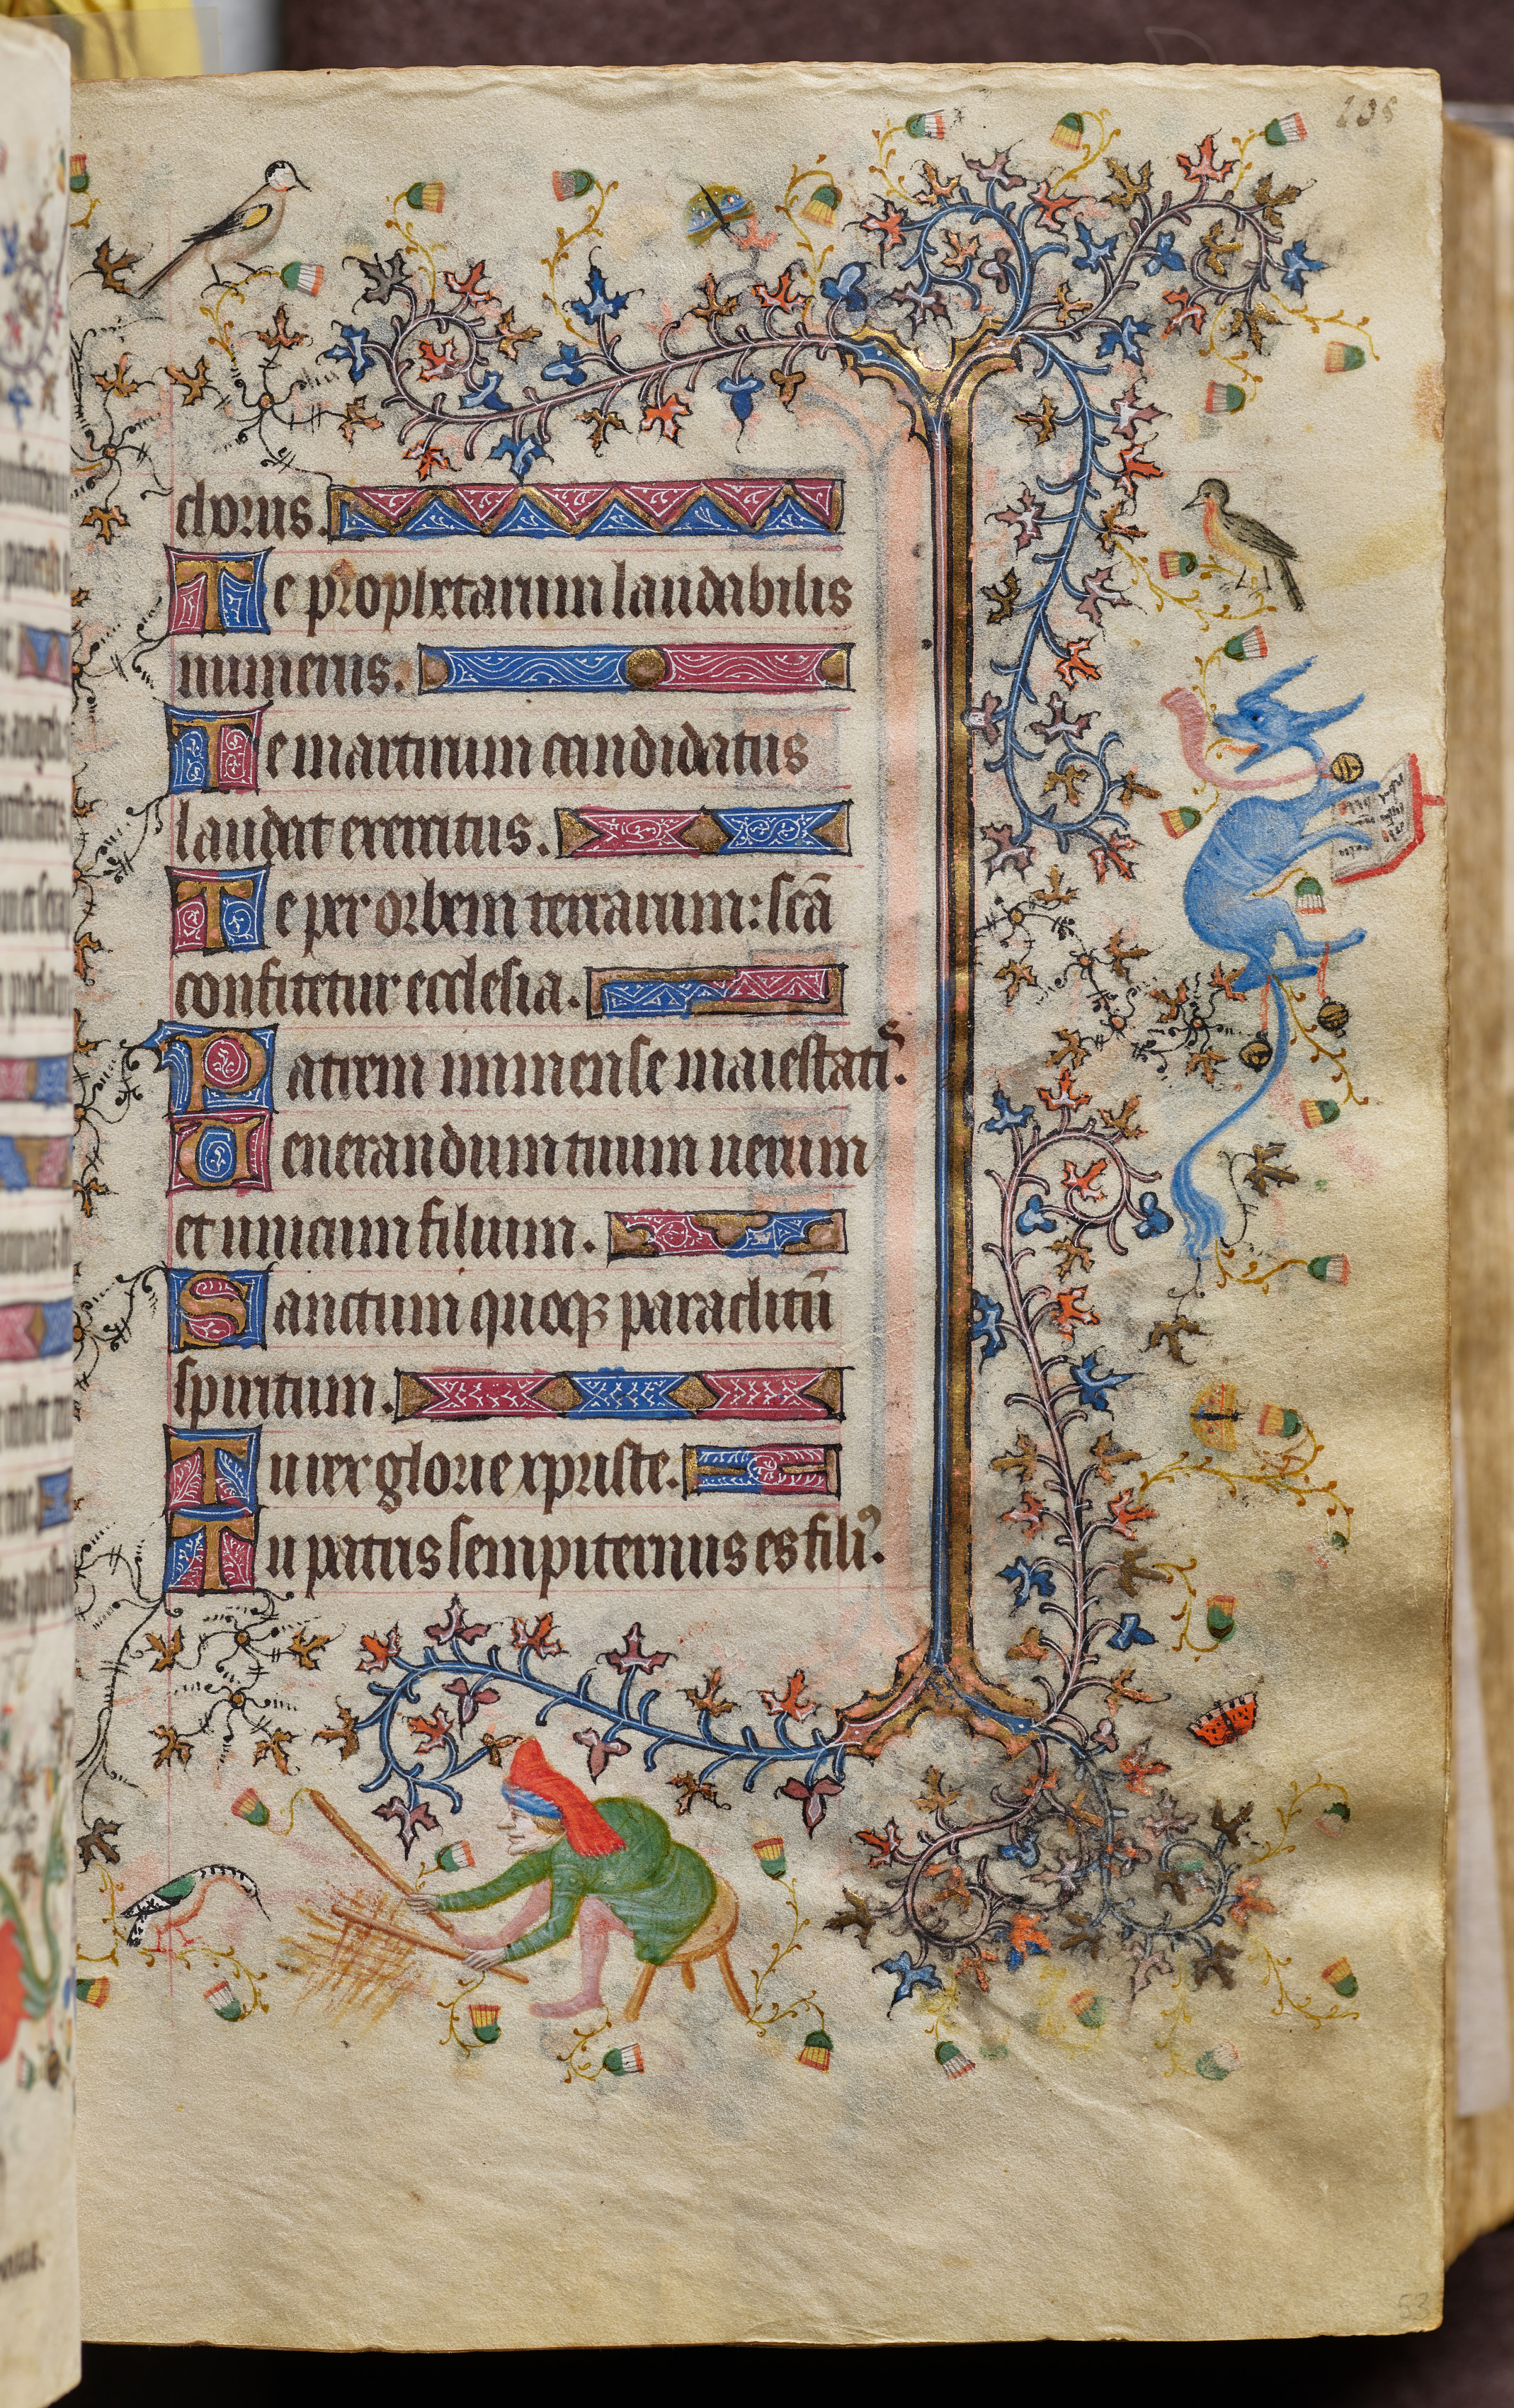 238
chorus.
Te prophetarum laudabilis
numerus.
Te martirum candidatus
laudat exercitus.
Te per orbem terrarum: scā
confitetur ecclesia.
Patrem immense maiestatis.
Uenerandum tuum uerum
et unicum filium.
Sanctum quoqꝫ paraclitū
spiritum.
Tu rex glorie xpriste.
Tu patris sempiternus es filiꝰ.
53